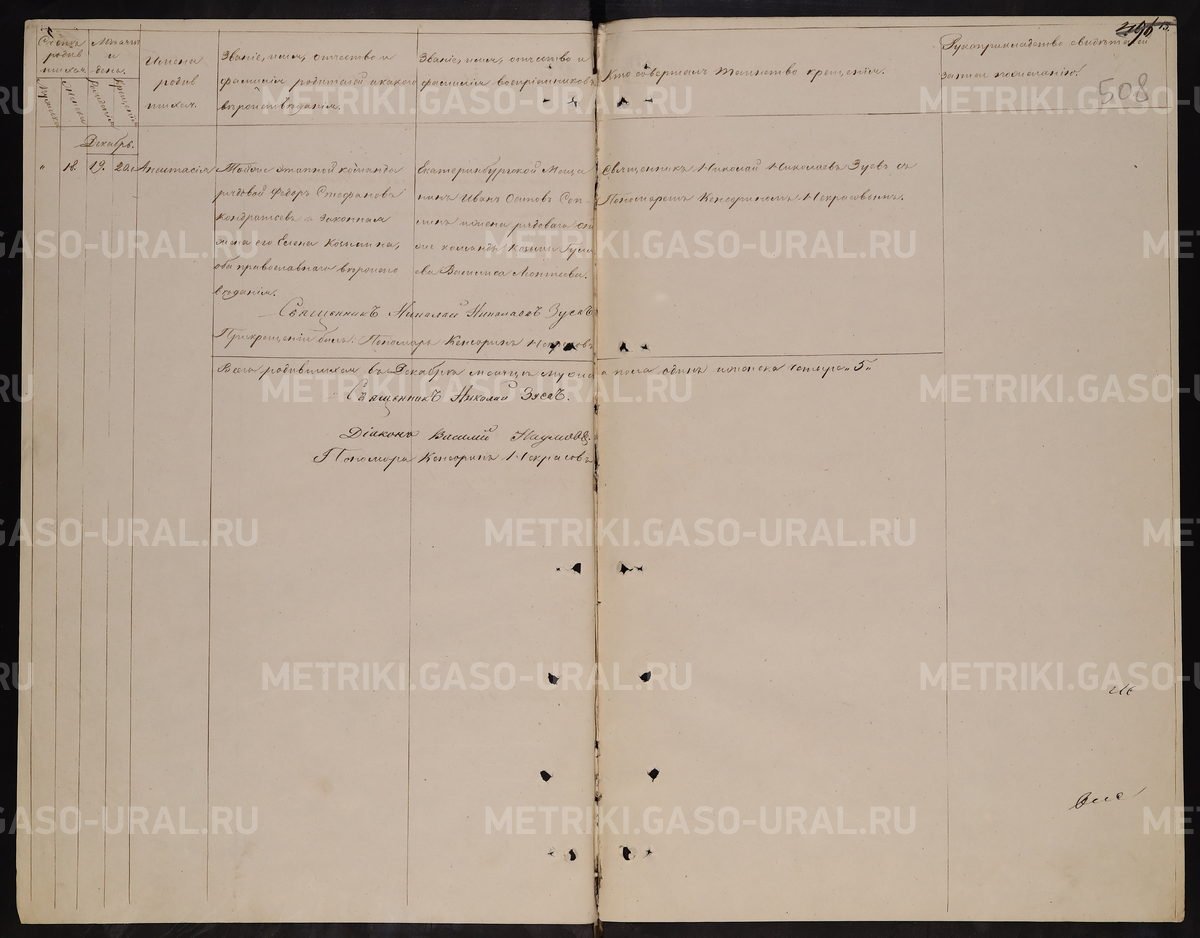 Счетъ родив шихся.
Мѣсяцъ и день.
Имена родив шихся.
Званіе, имя, отчество и
фамилія родителей и какого
вѣроисповѣданія.
Званіе, имя, отчество и
фамилія воспріемниковъ.
Кто совершалъ таинство крещенія.
Рукоприкладство свидѣтелей
записи по желанію.
508
Декабрь.
" 18. 19. 20. Анастасія
этапной команды
рядовой Федоръ Стефановъ
Кондратьевъ и законная
жена его Елена Козмина,
оба православнаго вѣроиспо
вѣданія.
Екатеринбургской Меща
нинъ Иванъ Осиповъ
рядоваго
Василиса
Священникъ Николай Николаевъ Зуевъ съ
Пономаремъ Кенсориномъ Некрасовымъ.
Священникъ Николай Николаевъ Зуевъ
При крещеніи былъ: Пономарь Кенсоринъ Некрасовъ
Всего родившихся въ Декабрѣ мѣсяцѣ мужска го пола одинъ и женска четыре "5"
Священникъ Николай Зуевъ.
Діаконъ Василій Наумовъ.
Пономарь Кенсоринъ Некрасовъ
METRIKI.GASO-URAL.RU